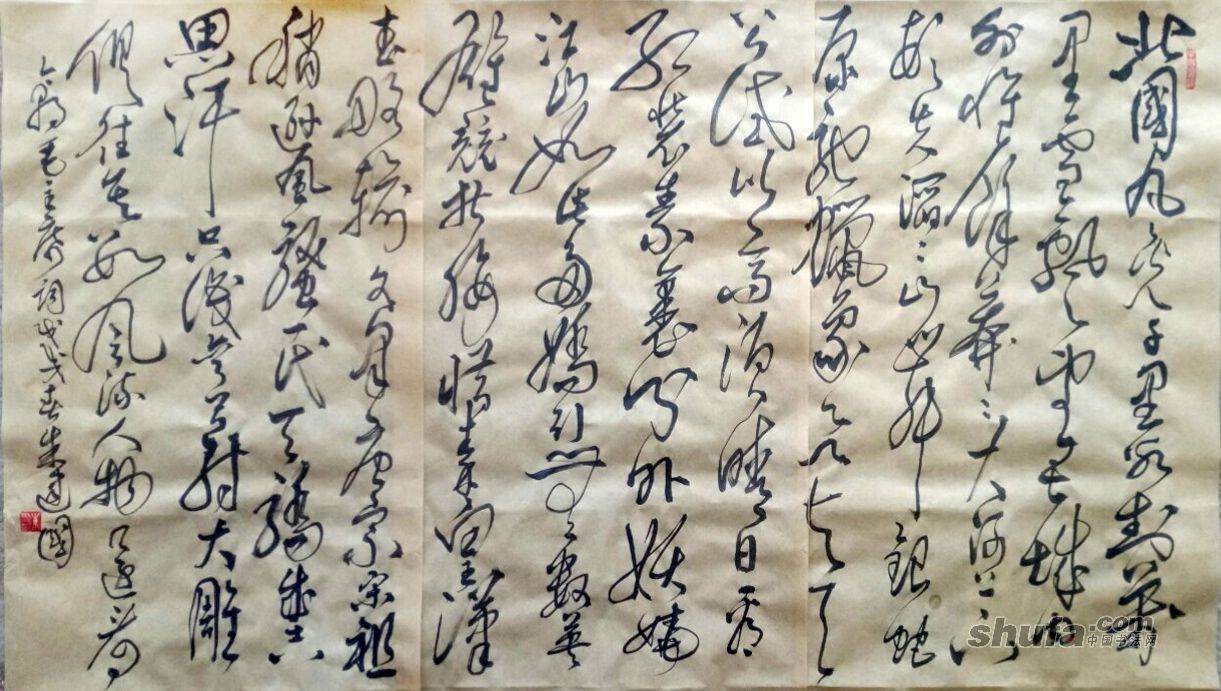 北國风光千里冰封萬
里雪飄望長城内
外惟餘莽〻大河上下
頓失滔〻山舞銀蛇
原馳蠟象欲与天
公试比高须晴日看
红装素裹分外妖娆
江山如此多嬌引無數英
雄競折腰惜秦皇漢
武略输文采唐宗宋祖
稍逊風骚一代天骄成吉
思汗只识弯弓射大雕
俱往矣数風流人物还看
今朝毛主席詞戊戌春朱建國
shufa.com
中国书法网